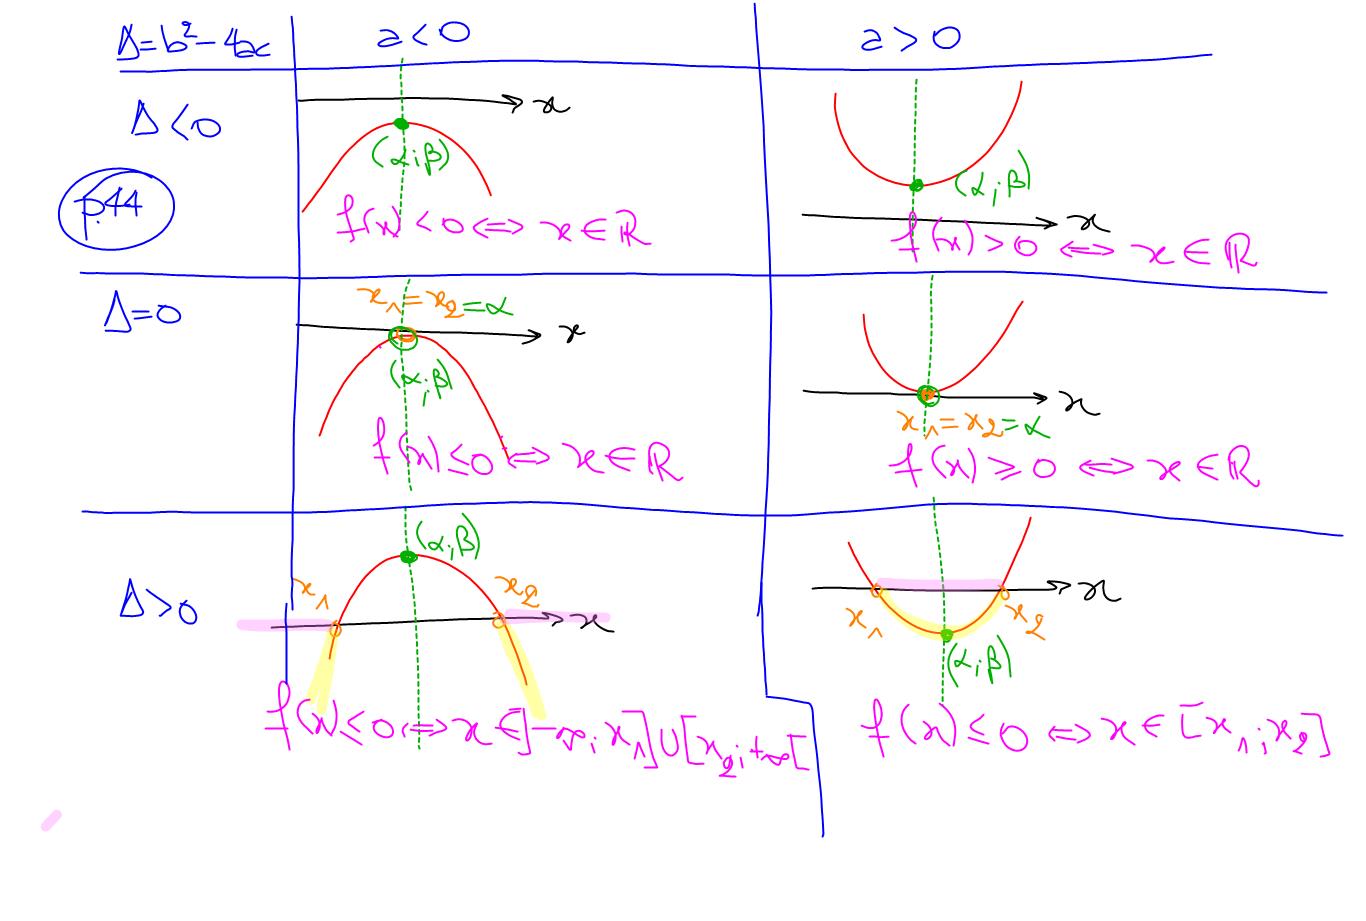 Δ=b²-4ac
a<0
a>0
Δ<0
x
(α;β)
f(x)<0 ⟺ x∈ℝ
(α;β)
x
f(x)>0 ⟺ x∈ℝ
p.44
Δ=0
x₁=x₂=α
x
(α;β)
f(x)≤0 ⟺ x∈ℝ
x
x₁=x₂=α
f(x)≥0 ⟺ x∈ℝ
Δ>0
(α;β)
x₁
x₂
x
f(x)≤0 ⟺ x∈]-∞;x₁]∪[x₂;+∞[
x
x₁
x₂
(α;β)
f(x)≤0 ⟺ x∈[x₁;x₂]